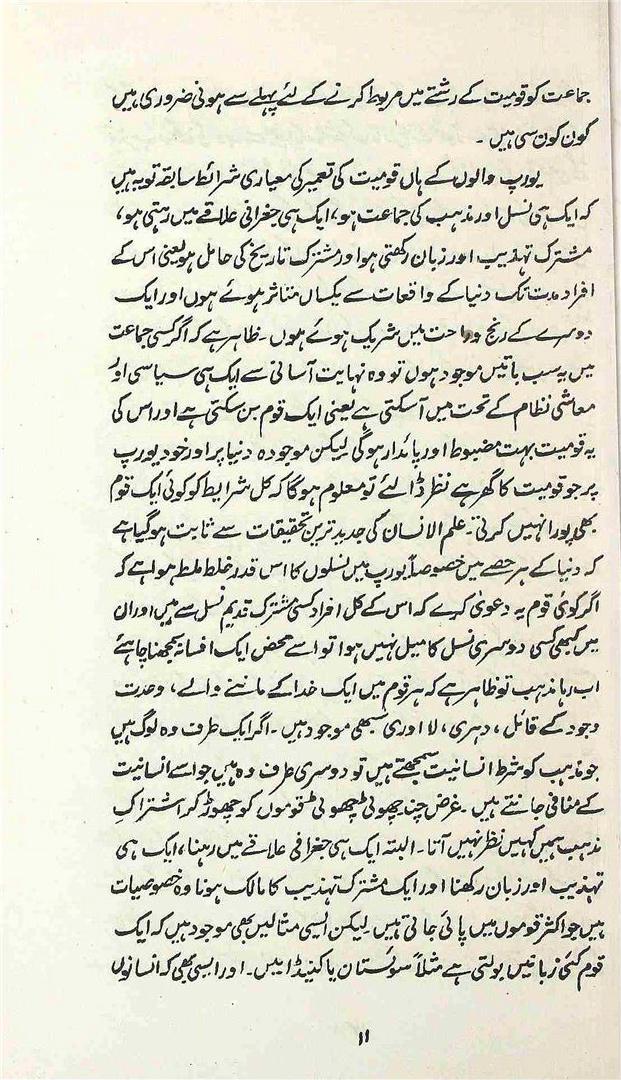 جماعت کو قومیت کے رشتے میں مربوط کرنے کے لئے پہلے سے ہونی ضروری ہیں
کون کون سی ہیں۔
یورپ والوں کے ہاں قومیت کی تعمیر کی معیاری شرائط سابقہ تو یہ ہیں
کہ ایک ہی نسل اور مذہب کی جماعت ہو، ایک ہی جغرافی علاقے میں رہتی ہو،
مشترک تہذیب اور زبان رکھتی ہو اور مشترک تاریخ کی حامل ہو یعنی اس کے
افراد مدت تک دنیا کے واقعات سے یکساں متاثر ہوئے ہوں اور ایک
دوسرے کے رنج و راحت میں شریک ہوئے ہوں۔ ظاہر ہے کہ اگر کسی جماعت
میں یہ سب باتیں موجود ہوں تو وہ نہایت آسانی سے ایک ہی سیاسی اور
معاشی نظام کے تحت میں آسکتی ہے یعنی ایک قوم بن سکتی ہے اور اس کی
یہ قومیت بہت مضبوط اور پائدار ہوگی لیکن موجودہ دنیا پر اور خود یورپ
پر جو قومیت کا گھر ہے نظر ڈالئے تو معلوم ہوگا کہ کل شرایط کو کوئی ایک قوم
بھی پورا نہیں کرتی۔ علم الانسان کی جدید ترین تحقیقات سے ثابت ہوگیا ہے
کہ دنیا کے ہر حصے میں خصوصاً یورپ میں نسلوں کا اس قدر خلط ملط ہوا ہے کہ
اگر کوئی قوم یہ دعویٰ کرے کہ اس کے کل افراد کسی مشترک قدیم نسل سے ہیں اور ان
میں کبھی کسی دوسری نسل کا میل نہیں ہوا تو اسے محض ایک افسانہ سمجھنا چاہئے
اب رہا مذہب تو ظاہر ہے کہ ہر قوم میں ایک خدا کے ماننے والے، وحدت
وجود کے قائل، دہری، لا ادری سبھی موجود ہیں۔ اگر ایک طرف وہ لوگ ہیں
جو مذہب کو شرط انسانیت سمجھتے ہیں تو دوسری طرف وہ ہیں جو اسے انسانیت
کے منافی جانتے ہیں۔ غرض چند چھوٹی چھوٹی قوموں کو چھوڑ کر اشتراکِ
مذہب ہمیں کہیں نظر نہیں آتا۔ البتہ ایک ہی جغرافی علاقے میں رہنا، ایک ہی
تہذیب اور زبان رکھنا اور ایک مشترک تہذیب کا مالک ہونا وہ خصوصیات
ہیں جو اکثر قوموں میں پائی جاتی ہیں۔ لیکن ایسی مثالیں بھی موجود ہیں کہ ایک
قوم کئی زبانیں بولتی ہے مثلاً سوئستان یا کنیڈا میں۔ اور ایسی بھی کہ انسانوں
۱۱